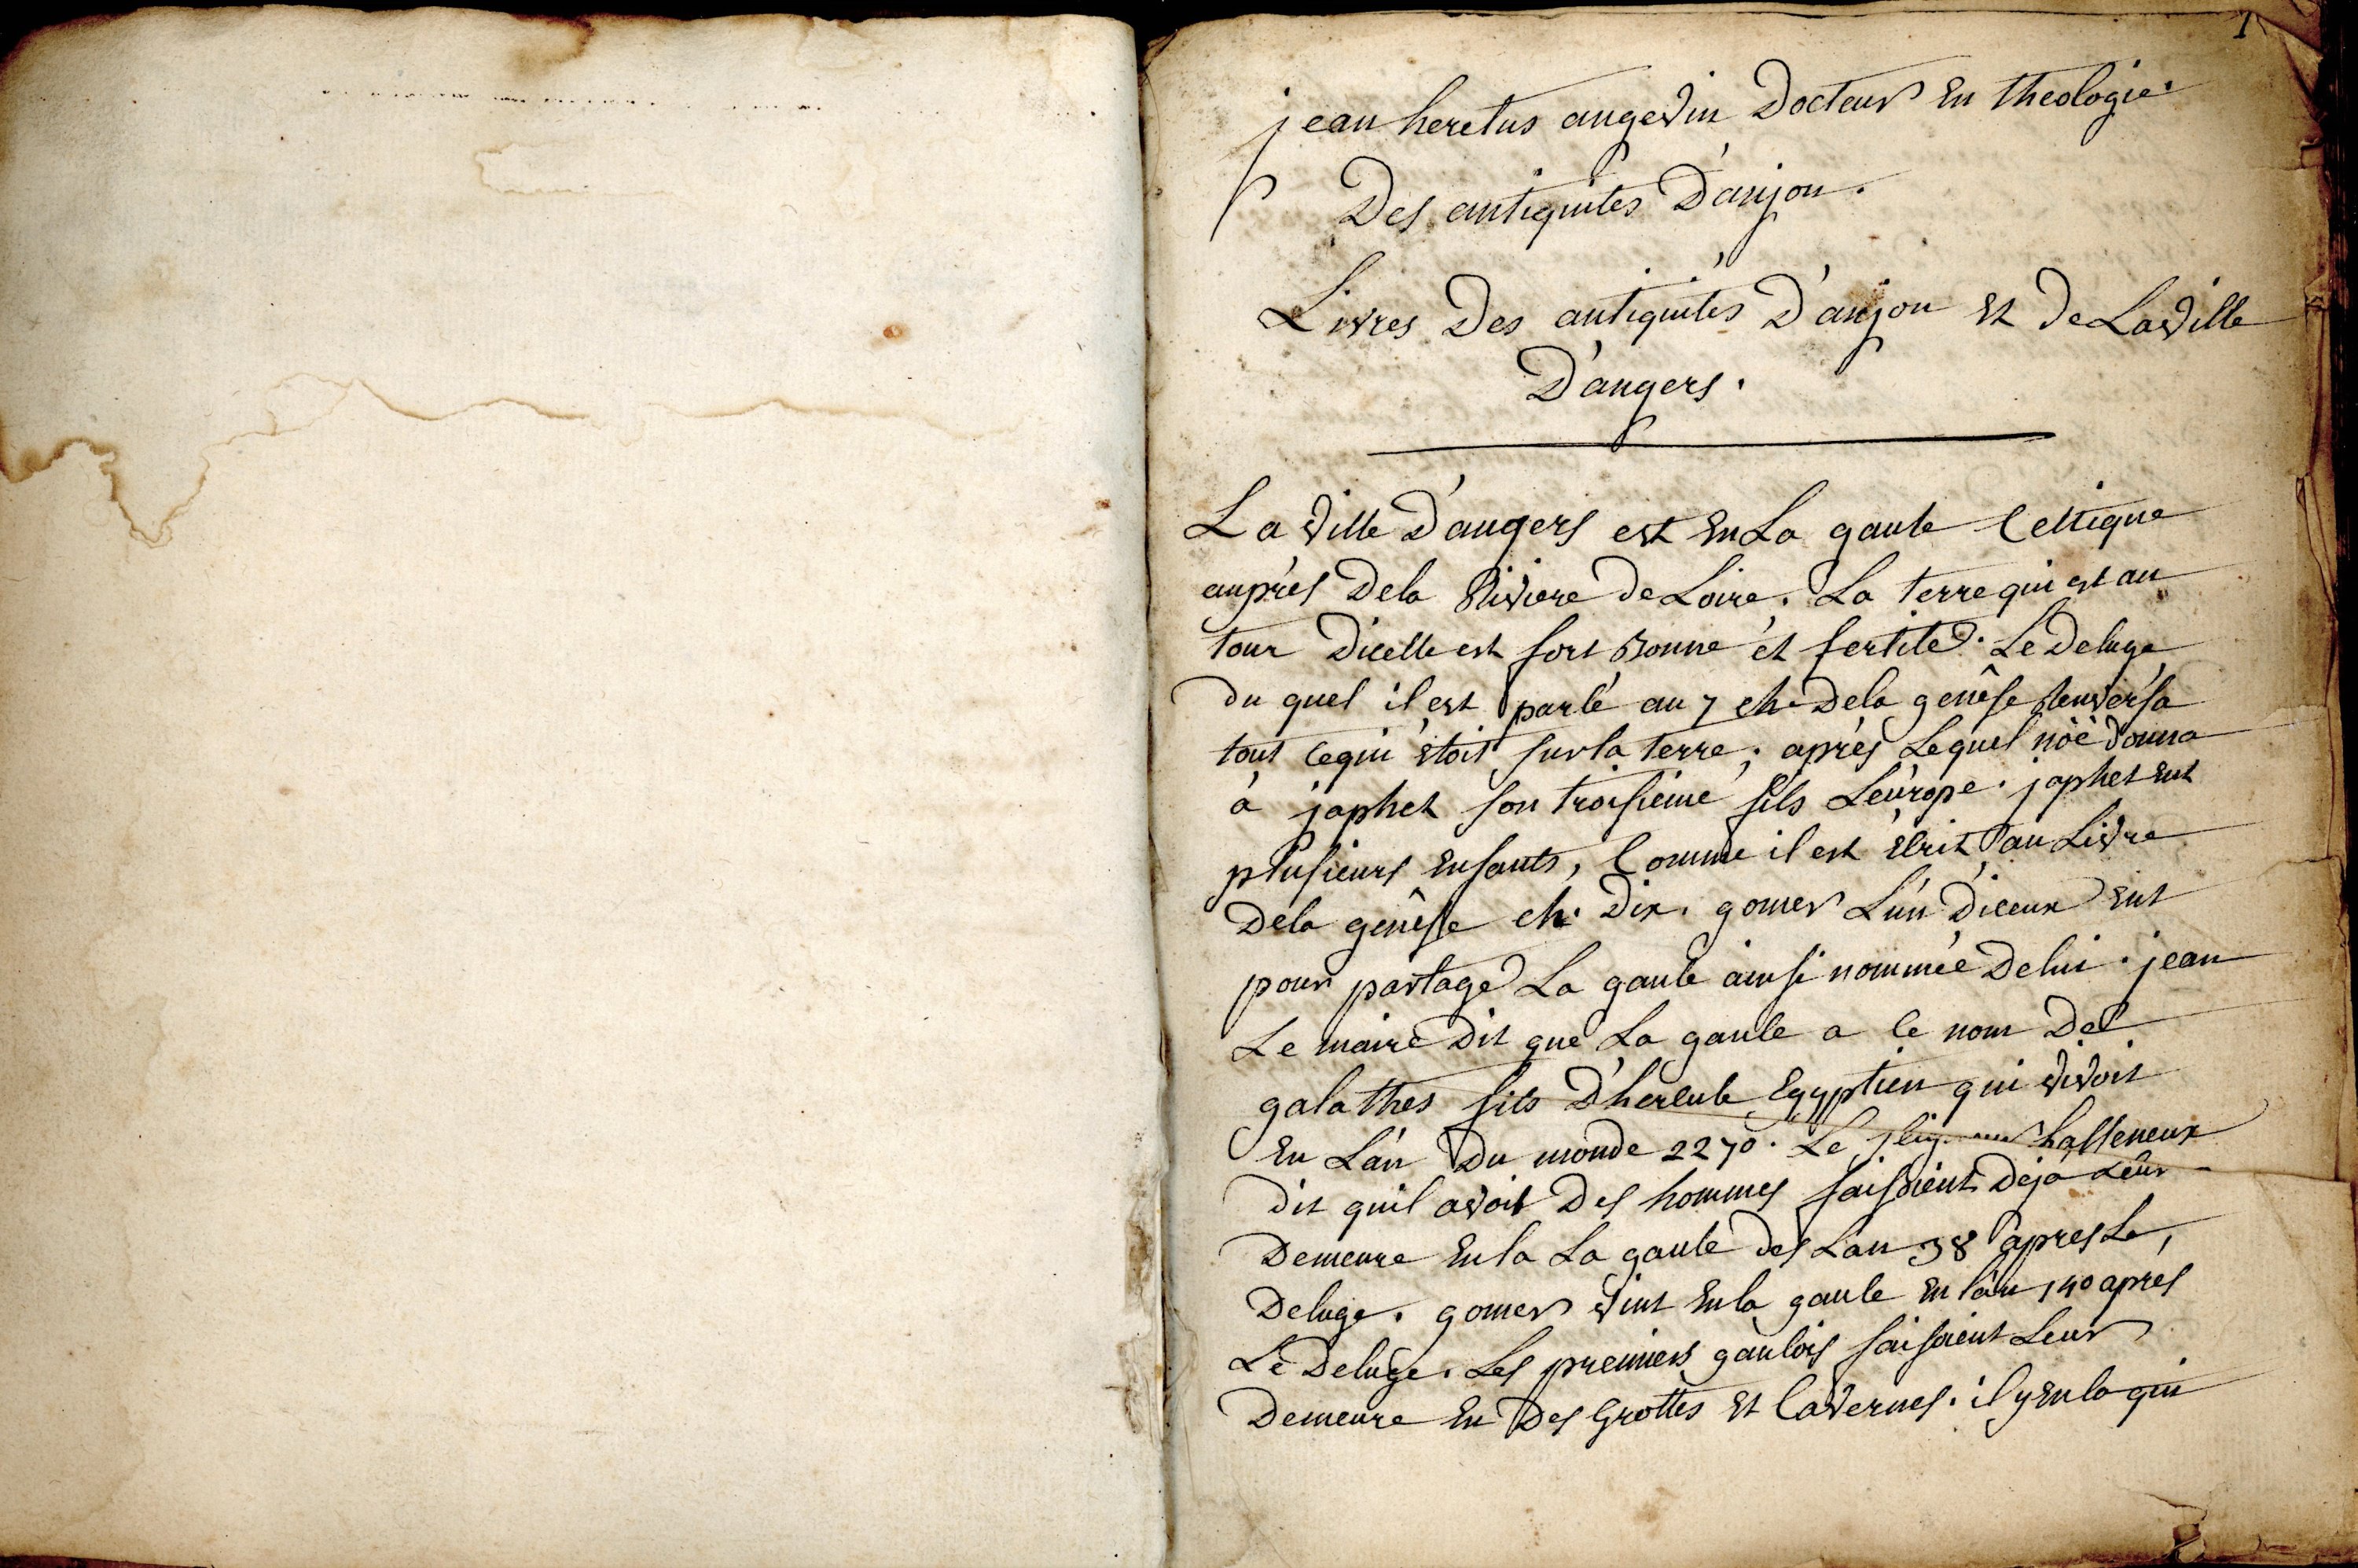 1
jean heretus angevin Docteur En theologie.
Des antiquités D'anjou.
Livres Des antiquités D'anjou Et de La ville
D'angers.
La ville D'angers est En La gaule Celtique
auprés De la Riviere de Loire. La terre qui est au
tour D'icelle est fort Bonne et fertile. Le Deluge
du quel il est parlé au 7 ch. De la genêse Renversa
tout ce qui étoit sur la terre; aprés Lequel nöé donna
à japhet son troisième fils L'europe. japhet Eut
plusieurs Enfants, Comme il est Ecrit au Livre
De la genêse ch. Dix. gomer L'un D'iceux Eut
pour partage La gaule ainsi nommée De lui. jean
Le maire Dit que La gaule a ce nom De
galathes fils D'hercule Egyptien qui vivoit
En L'an Du monde 2270. Le halleneux
Dit qu'il avoit Des hommes faisoient Deja Leur
Demeure En la La gaule des L'an 38 apres Le
Deluge. gomer vint En la gaule En l'an 140 aprés
Le Deluge. Les premiers gaulois faisoient Leur
Demeure En Des Grottes Et Cavernes. il y En la qui